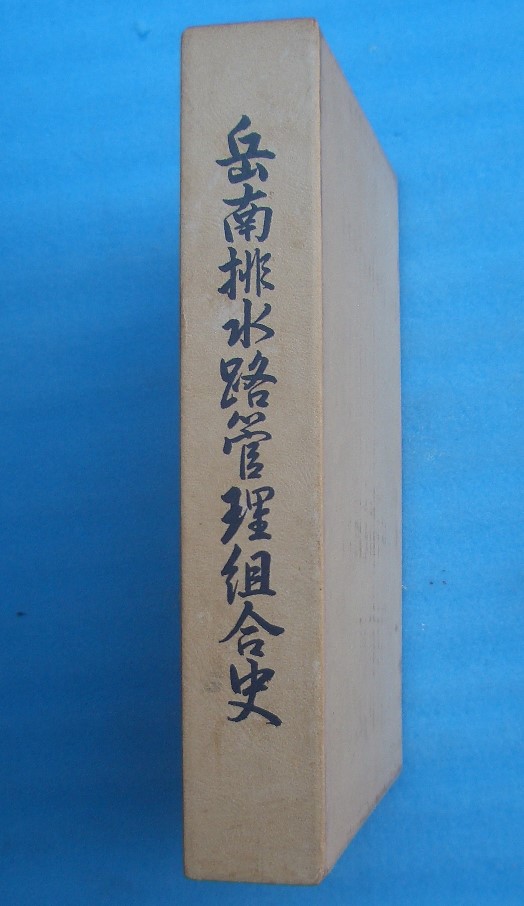 岳南排水路管理組合史